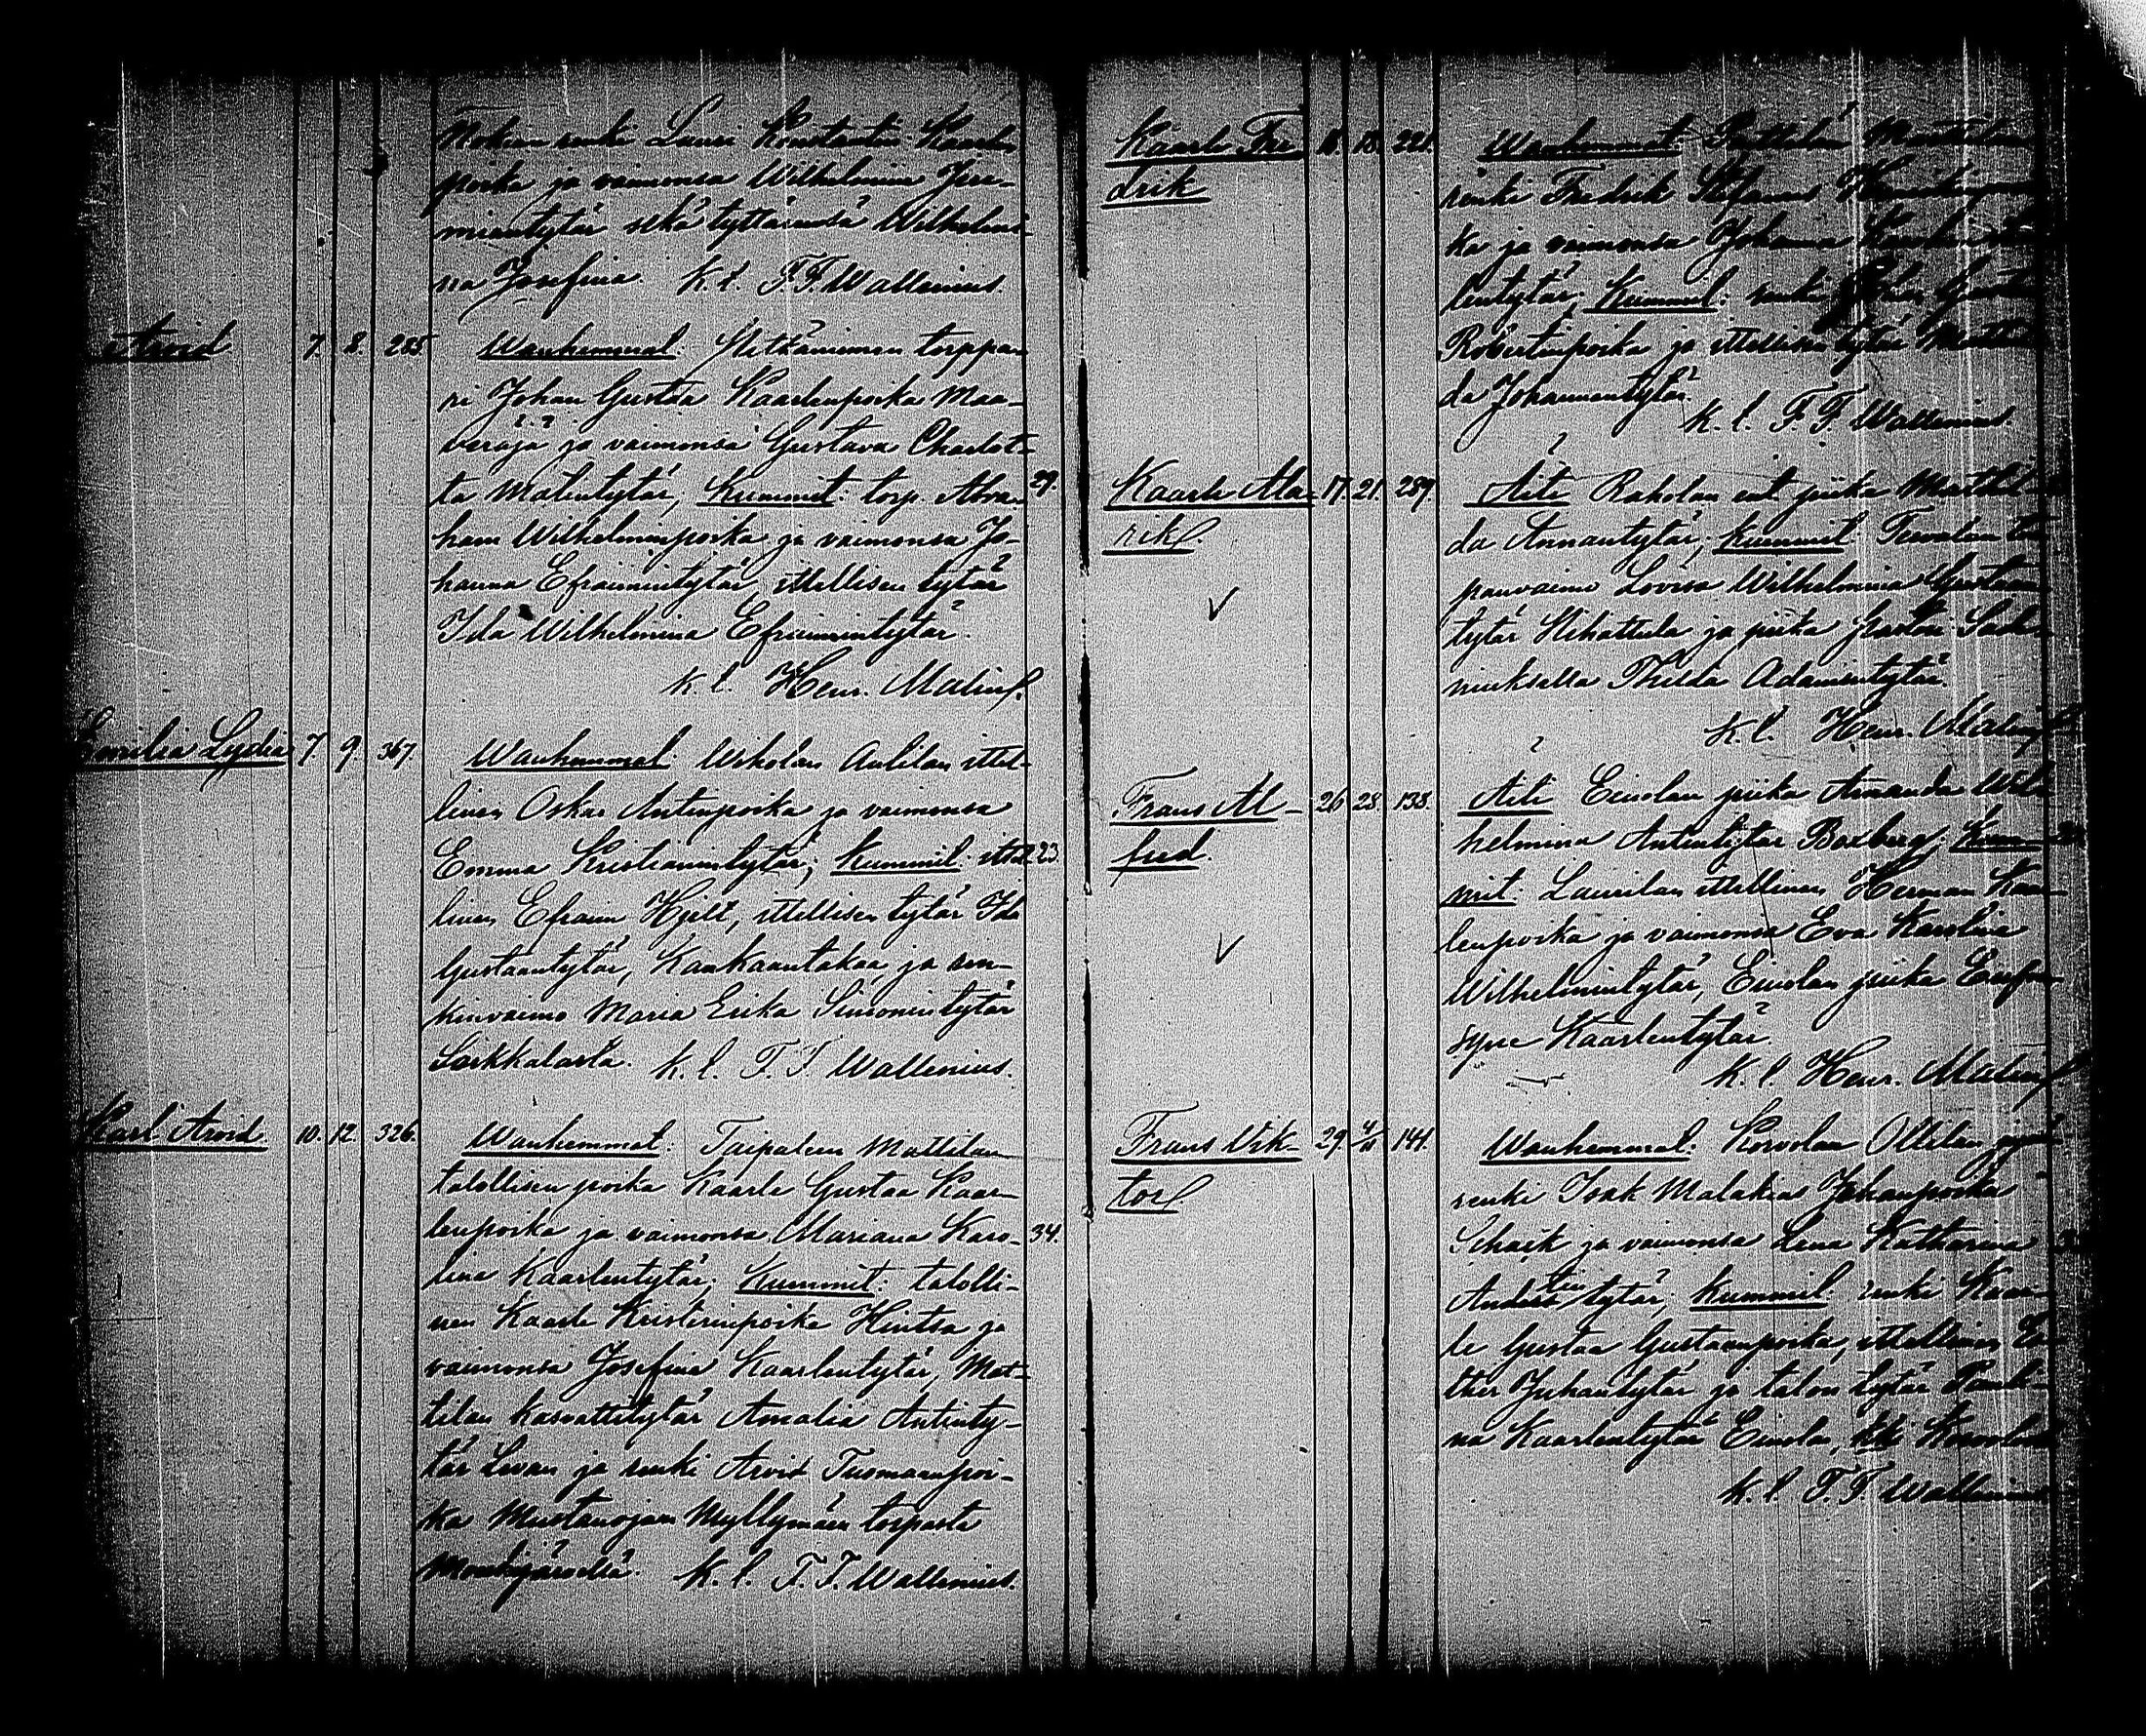 renki Lauri Konstantin Kaarlen
poika ja vaimonsa Wilhelmina Jere-
miantytär sekä tyttärensä Wilhelmi-
na Josefina. k. l. F. F. Wallenius.
Arvid 7. 8. 285 Wanhemmat: torppa-
ri Johan Gustaa Kaarlenpoika Maa-
veräjä ja vaimonsa Gustava Charlot-
ta Matintytär, Kummit: torp. Abra- 29.
ham Wilhelminpoika ja vaimonsa Jo-
hanna Efraimintytär, ittellisen tytär
Ida Wilhelmina Efraimintytär.
k. l. Henr. Malin
Emilia Lydia 7 9. 367. Wanhemmat: Uskolan Aulilan ittel-
linen Oskar Antinpoika ja vaimonsa
Emma Kristianintytär; Kummit: ittel 23.
linen Efraim Hjelt, ittellisen tytär Ida
Gustaantytär, Kankaantakaa, ja ren-
kinvaimo Maria Erika Simonintytär
Sarkkalasta. k. l. F. F. Wallenius.
Karl Arvid 10. 12. 326. Wanhemmat: Taipaleen Mattilan
talollisen poika Kaarle Gustaa Kaar-
lenpoika ja vaimonsa Mariana Karo- 34.
lina Kaarlentytär; Kummit: talolli-
nen Kaarle Kristerinpoika Hintsa ja
vaimonsa Josefina Kaarlentytär, Mat-
tilan kasvattitytär Amalia Antinty-
tär Levan ja renki Arvid Tuomaanpoi-
ka Mustanojan Myllymäen torpasta
Mouhijärveltä. k. l. F. F. Wallenius.
Kaarle Fre 18. 221. Wanhemmat:
drik renki Fredrik Stefanus
ka ja vaimonsa Johanna
lentytär; Kummit: renki
Robertinpoika ja ittellisen tytär
da Johannentytär.
k. l. F. F. Wallenius.
Kaarle Ala- 17. 21. 289. Äiti Raholan ent. piika Mathil
rik da Annantytär; Kummit:
panvaimo Lovisa Wilhelmina Gustaan
tytär ja piika
Thilda Adamintytär.
k. l. Henr. Malin
Frans Al- 26 28. 138. Äiti Einolan piika Amanda Wil
fred. helmina Antintytär Boxberg; Kum
mit: Laurilan ittellinen Herman Kaar
lenpoika ja vaimonsa Eva Karolina
Wilhelmintytär, Einolan piika Eufro
syne Kaarlentytär
k. l. Henr. Malin
Frans Vik- 29. 141. Wanhemmat: Korvolan Ollilan
tor renki Isak Malakias Johanpoika
Schaik ja vaimonsa Lena Katharina
Andersintytär; Kummit: renki Kaar
le Gustaa Gustaanpoika, ittellinen E
ther Juhantytär ja talon tytär
na Kaarlentytär Einolan,
k. l. F. F. Wallenius